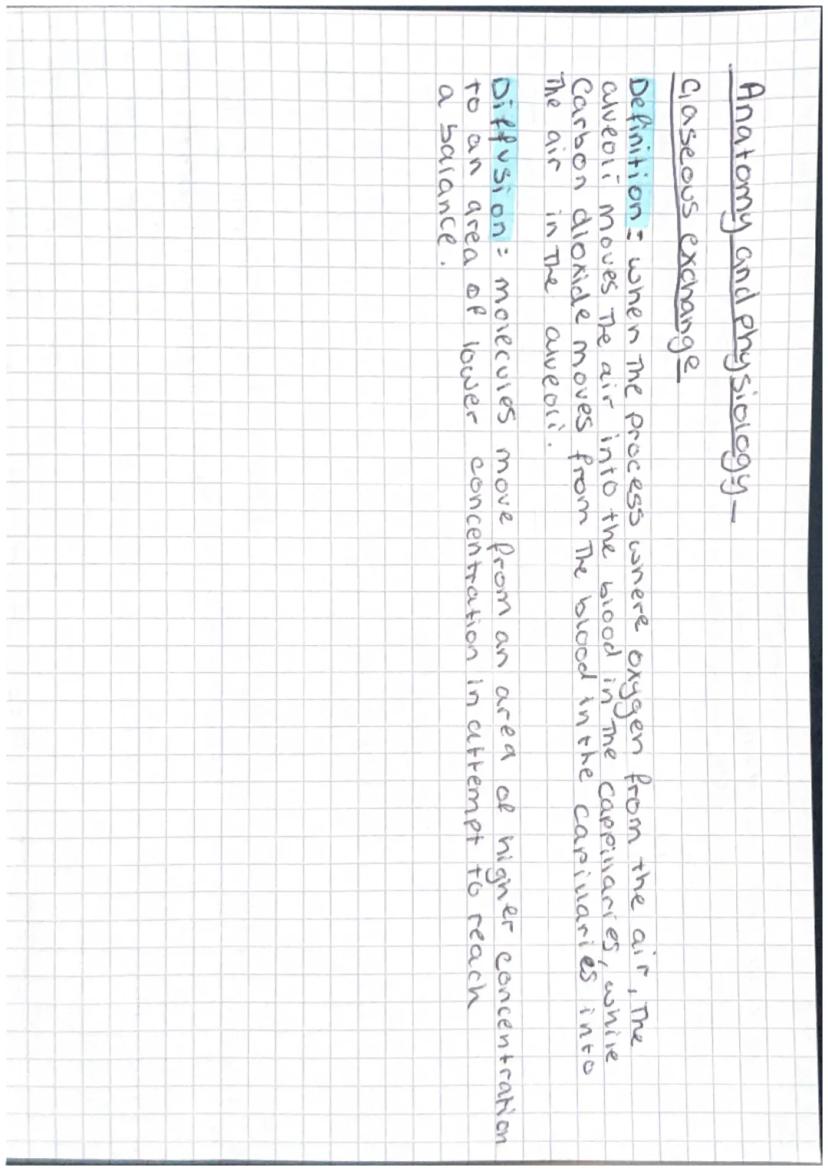 Anatomy and physiology -
Gaseous exchange
Definition: when the process where oxygen from the air, The
alveoli moves The air into the blood in The cappillaries, while
Carbon dioxide moves from The blood in the capillaries into
The air in The alveoli.
Diffusion: molecules move from an area of higher concentration
to an area of lower concentration in attempt to reach
a balance.